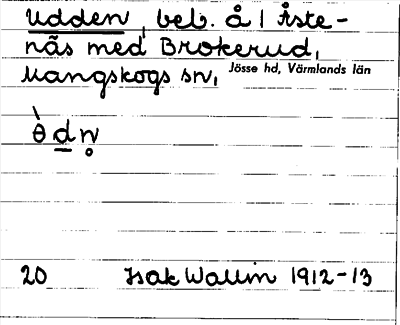 Udden, beb. å 1 Åste-
näs med Brokerud,
Mangskogs sn, Jösse hd, Värmlands län
ɵ̀ d̲ n̥
20 Isak Wallin 1912-13